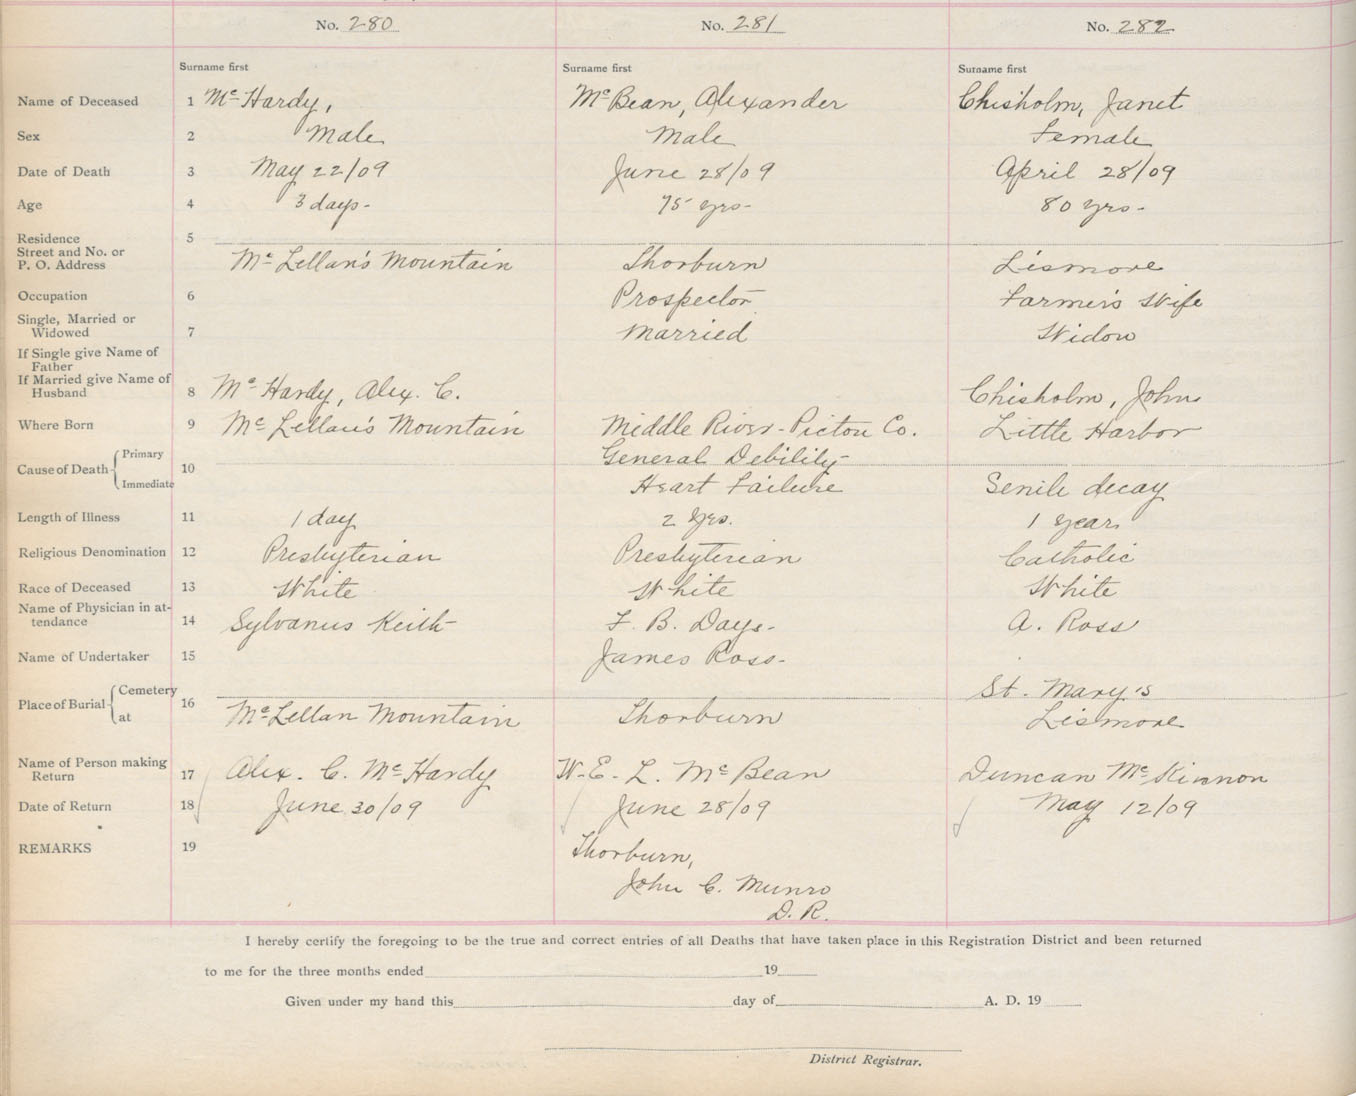 No. 280 No. 281 No. 282
Surname first Surname first Surname first
Name of Deceased 1 Mc Hardy, Mc Bean, Alexander Chisholm, Janet
Sex 2 Male Male Female
Date of Death 3 May 22/09 June 28/09 April 28/09
Age 4 3 days- 75 yrs- 80 yrs-
Residence 5
Street and No. or
P. O. Address Mc Lellan's Mountain Thorburn Lismore
Occupation 6 Prospector Farmer's Wife
Single, Married or
Widowed 7 Married Widow
If Single give Name of
Father
If Married give Name of
Husband 8 Mc Hardy, Alex. C. Chisholm, John
Where Born 9 Mc Lellan's Mountain Middle River-Pictou Co. Little Harbor
Primary General Debility
Cause of Death 10
Immediate Heart Failure Senile decay
Length of Illness 11 1 day 2 yrs. 1 year
Religious Denomination 12 Presbyterian Presbyterian Catholic
Race of Deceased 13 White White White
Name of Physician in at-
tendance 14 Sylvanus Keith F. B. Day A. Ross
Name of Undertaker 15 James Ross-
Cemetery St. Mary's
Place of Burial 16
at Mc Lellan Mountain Thorburn Lismore
Name of Person making
Return 17 Alex. C. Mc Hardy W. E. L. Mc Bean Duncan Mc Kinnon
Date of Return 18 June 30/09 June 28/09 May 12/09
REMARKS 19 Thorburn,
John C. Munro
D. R.
I hereby certify the foregoing to be the true and correct entries of all Deaths that have taken place in this Registration District and been returned
to me for the three months ended 19
Given under my hand this day of A. D. 19
District Registrar.